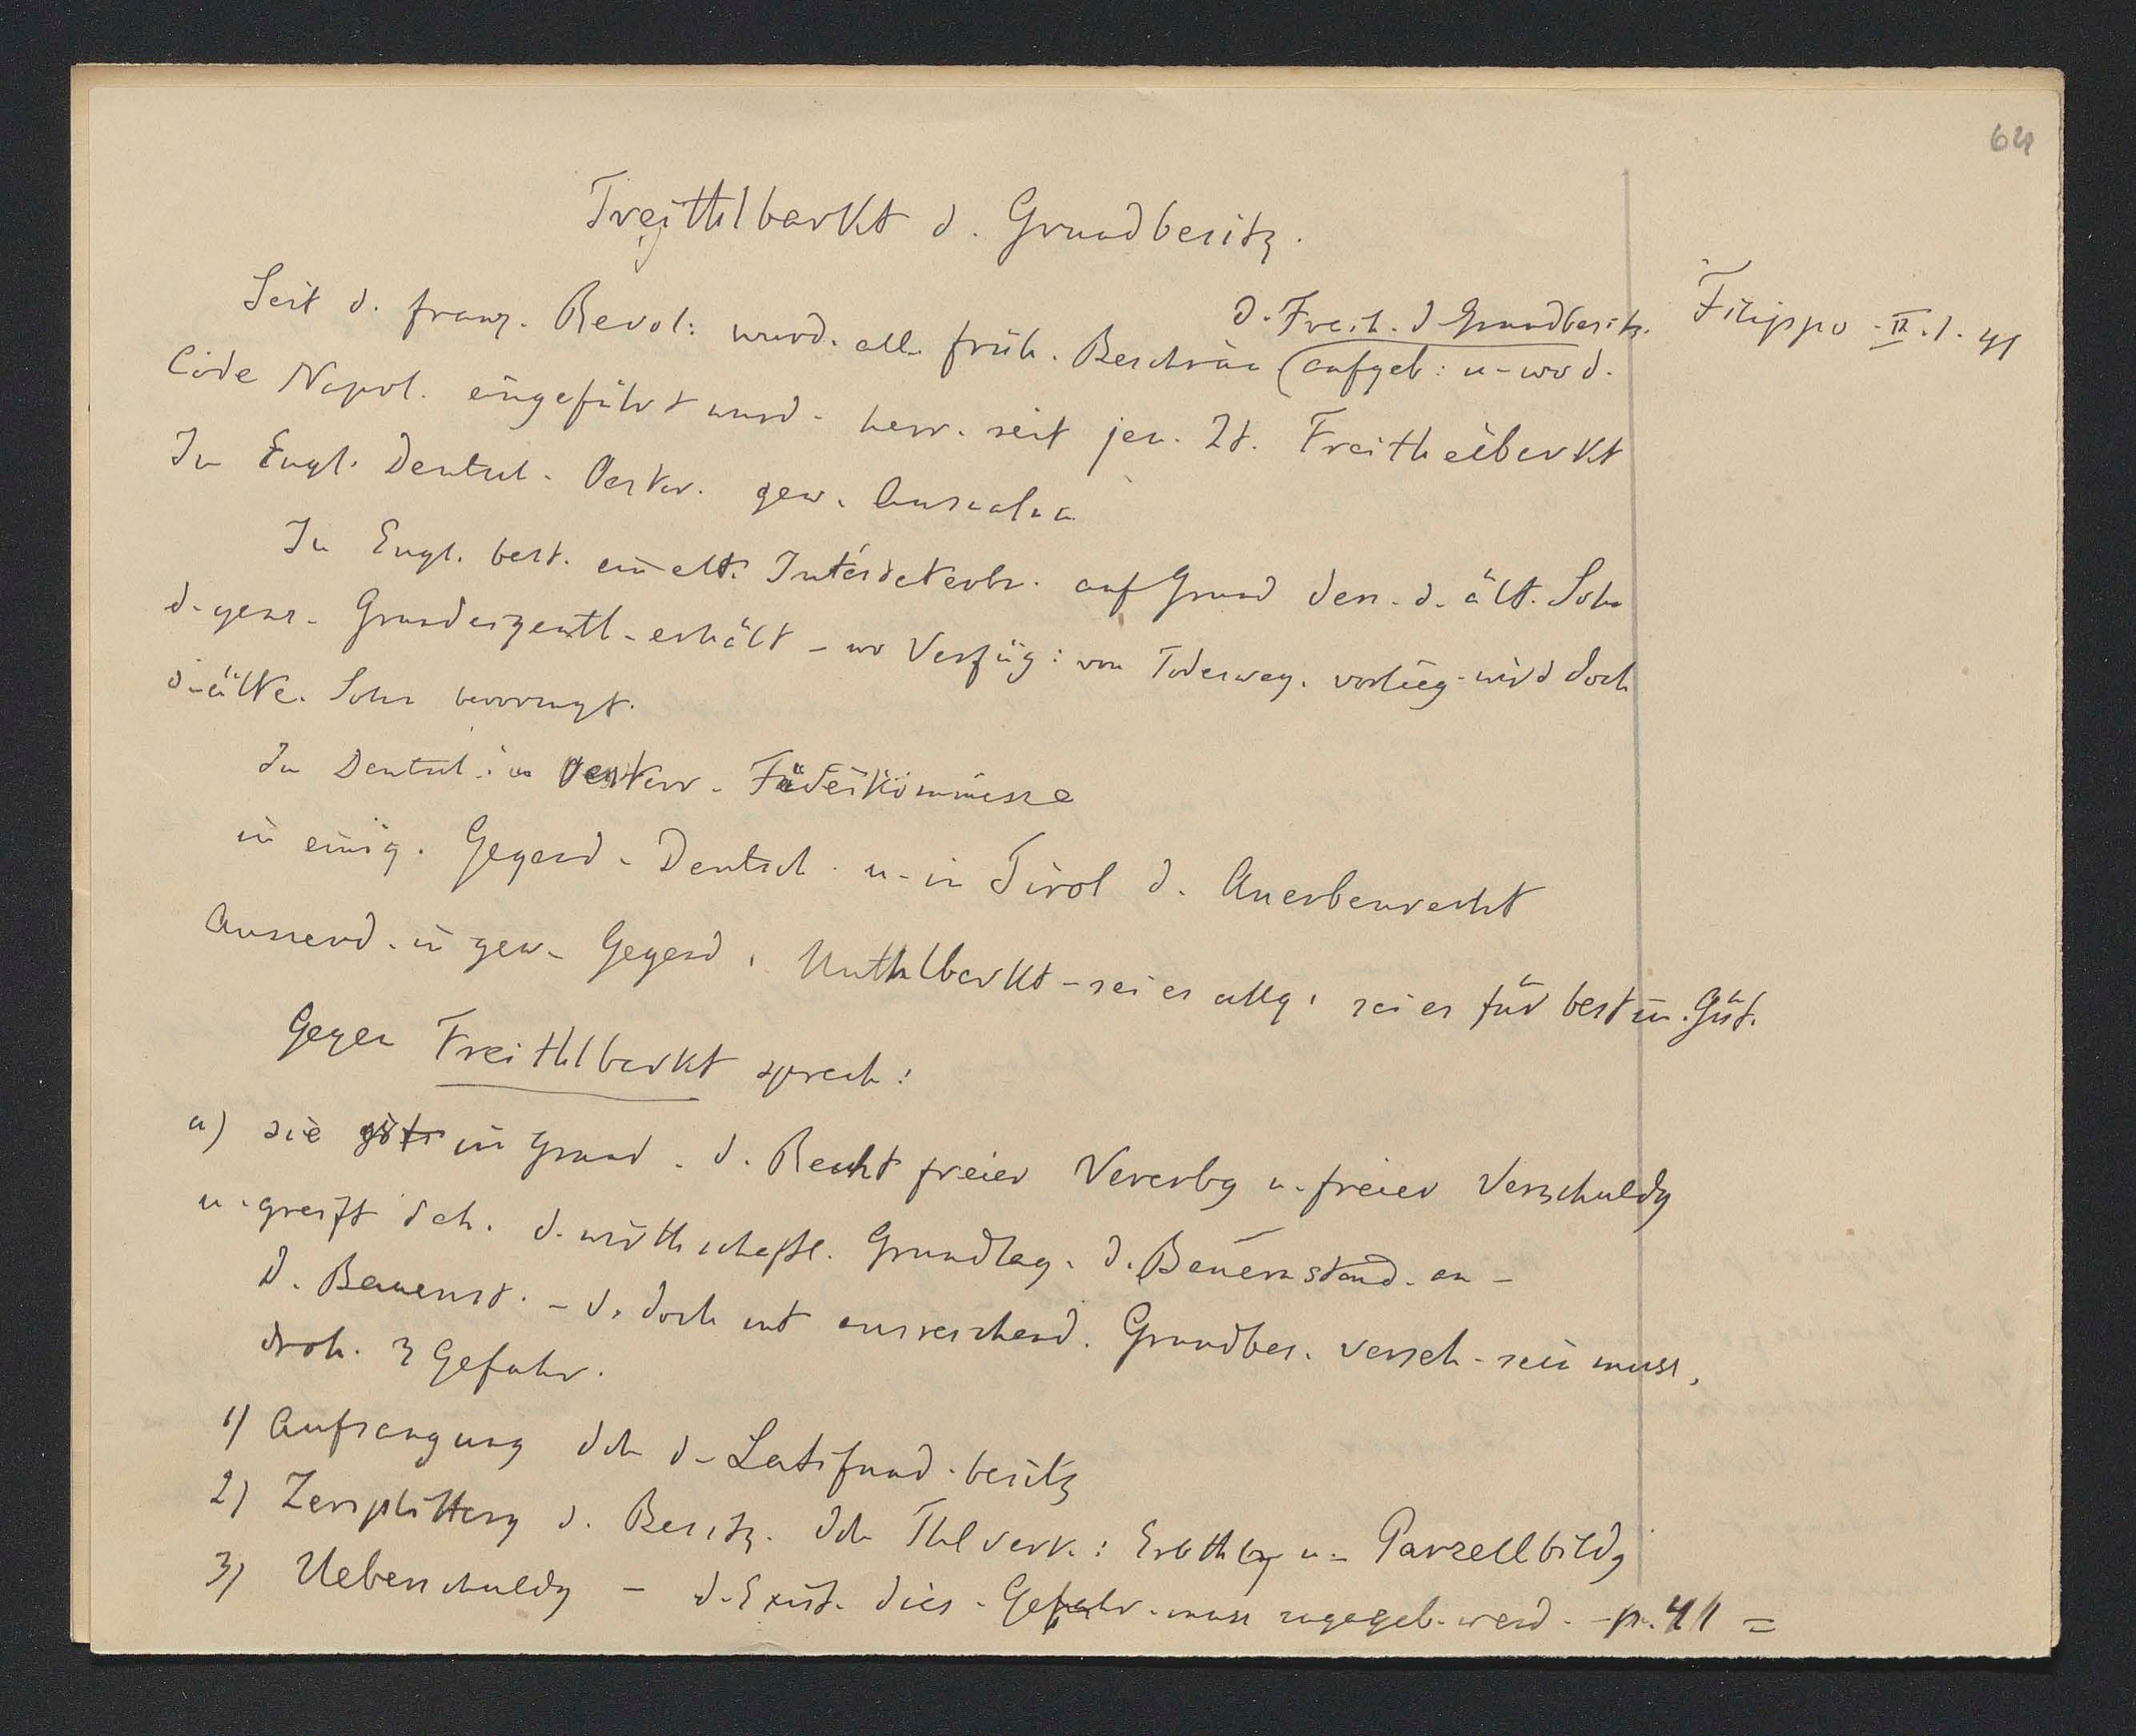 64
Freithlbarkt d. Grundbesitz.
Filippo - II. 1. 41
d. Freih. d Grundbesitz.
Seit d. franz. Revol: wurd. all. früh. Beschrän aufgeb: u - wo d.
Code Napol. eingeführt wurd - herr. seit jen. Zt. Freitheilbarkt
In Engl. Deutsch. Oester. gew. Ausnahm
In Engl. best. ein alt. Intestaterbr. auf Grund dess. d. ält. Sohn
d. ges. Grundeigenth - erhält - wo Verfüg: von Todesweg. vorlieg - wird doch
d. älte. Sohn bevorzugt.
In Deutsch. in Oesterr. Fideikommisse
in einig. Gegend - Deutsch. u - in Tirol d. Anerbenrecht
Ausserd. in gew - Gegend. Unthlbarkt - sei es allg. sei es für bestim. Güt.
Gegen Freithlbarkt sprech:
a) sie in Grund. d. Recht freier Vererbg u. freier Verschuldg
u. greift dch. d. wirthschaftl. Grundlag. d. Bauernstand. an -
D. Bauernst. - d. doch mit ausreichend. Grundbes. verseh - sein muss,
droh. 3 Gefahr.
1) Aufsaugung dch d - Latifund. besitz
2) Zersplitterg d. Besitz. dch Thlverk: Erbthlg u - Parzellbildg
3) Ueberschuldg - d. Exist. dies - Gefahr - muss zugegeb. werd. - p. 41 =